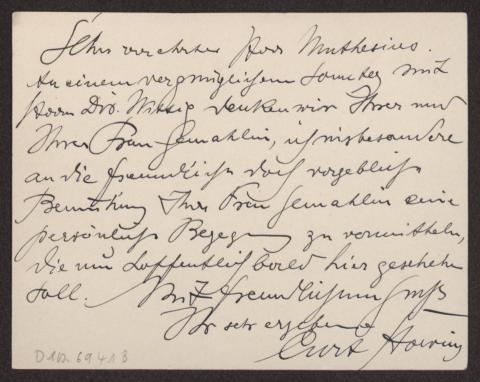 Sehr verehrter Herr Muthesius.
An einem vergnüglichem Sonntag mit
Herrn Dir. Wittig denken wir Ihrer und
Ihrer Frau Gemahlin, ich insbesondere
an die freundliche doch vergebliche
Bemühung Ihrer Frau Gemahlin eine
persönliche Begegnung zu vermitteln,
die nun hoffentlich bald hier geschehen
soll. Mit freundlichem Gruß
Ihr sehr ergebener
Curt
D 102. 6941 B